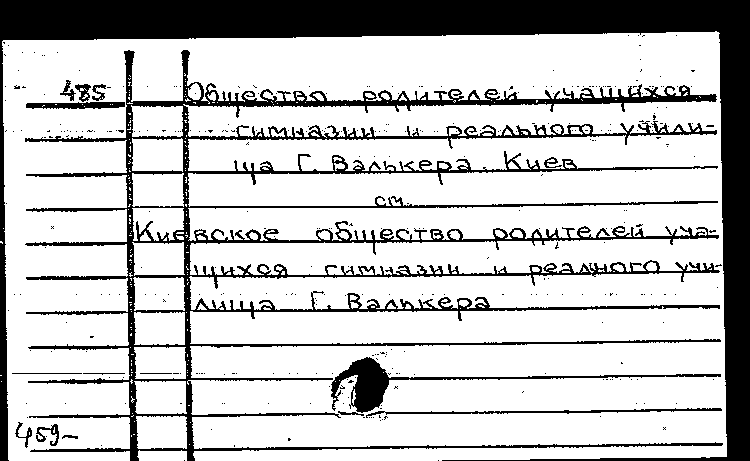 485 Общество родителей учащихся
гимназии и реального учили-
ща Г. Валькера. Киев
см.
Киевское общество родителей уча-
щихся гимназии и реального учи-
лища Г. Валькера
459-